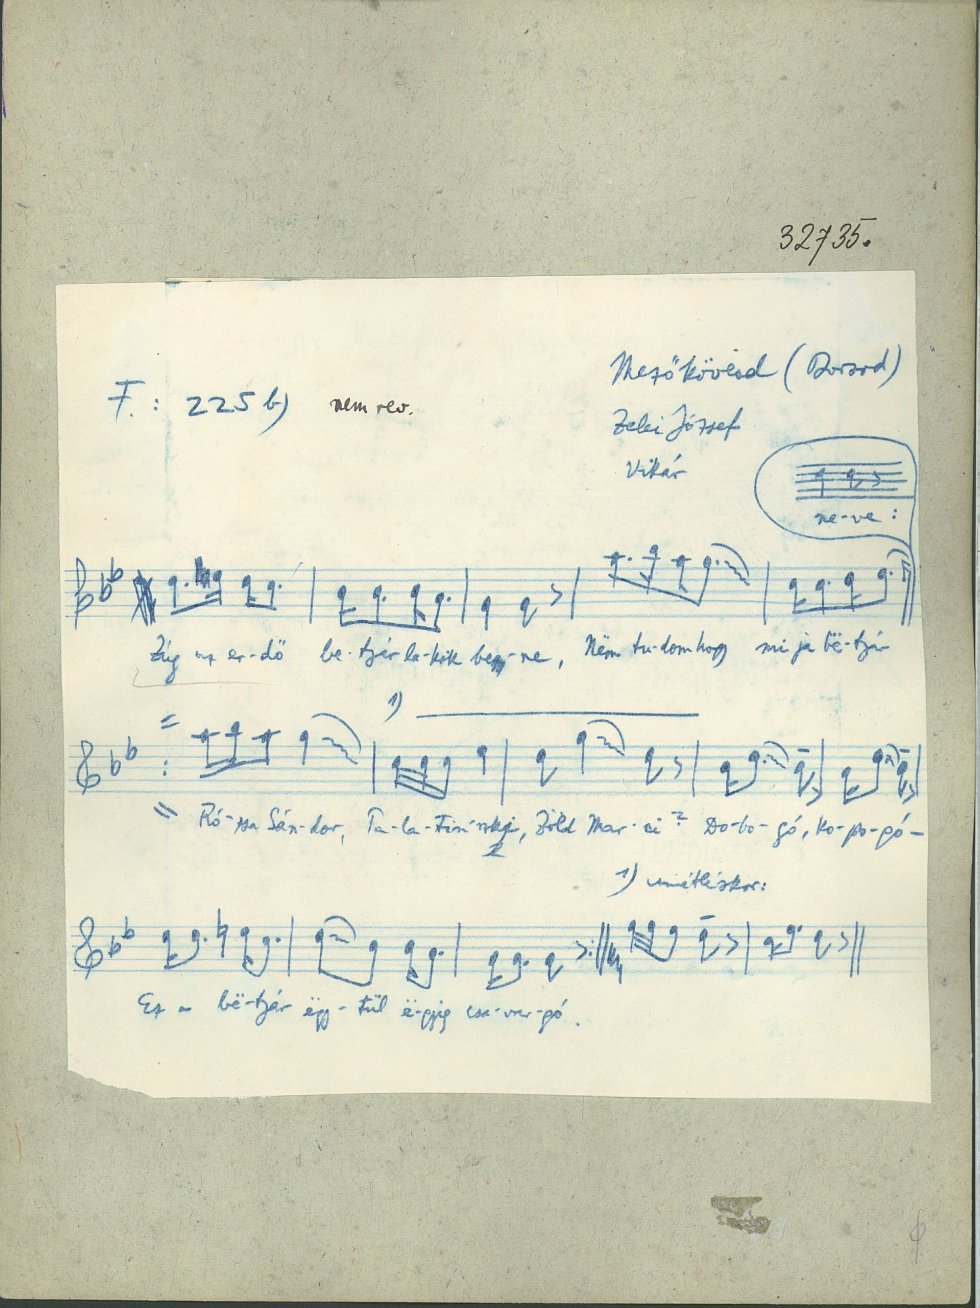 32735.
Mezőkövesd (Borsod)
F.: 225 b) nem rev.
Zelei József
Vikár
ne-ve:
Zúg az er-dő be-tjár la-kik ben-ne, Nëm tu-dom hogy mi ja bë-tjár
1)
Ró-zsa Sán-dor, Ta-la- Zöld Mar-ci? Do-bo-gó, ko-po-gó-
1) ismétléskor:
Ez a bë-tjár ëgy-tül ë-gyig csa-var-gó.